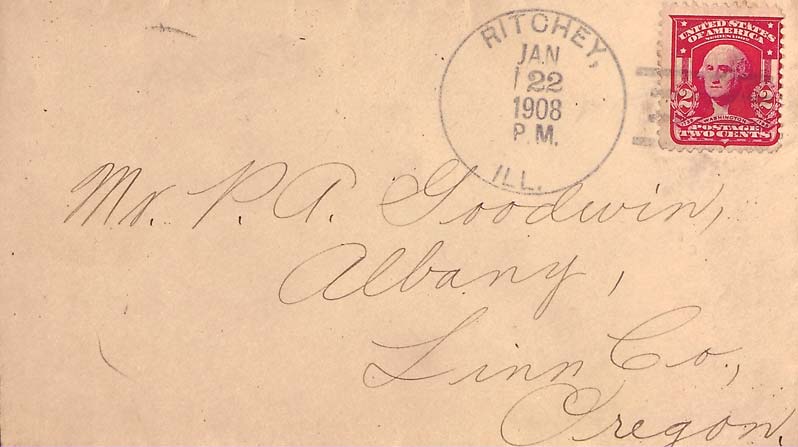 RITCHEY,
JAN
22
1908
P.M.
ILL.
UNITED STATES
OF AMERICA
SERIES 1902
2 2
WASHINGTON
POSTAGE
TWO CENTS
Mr. P. A. Goodwin,
Albany,
Linn Co.,
Oregon.